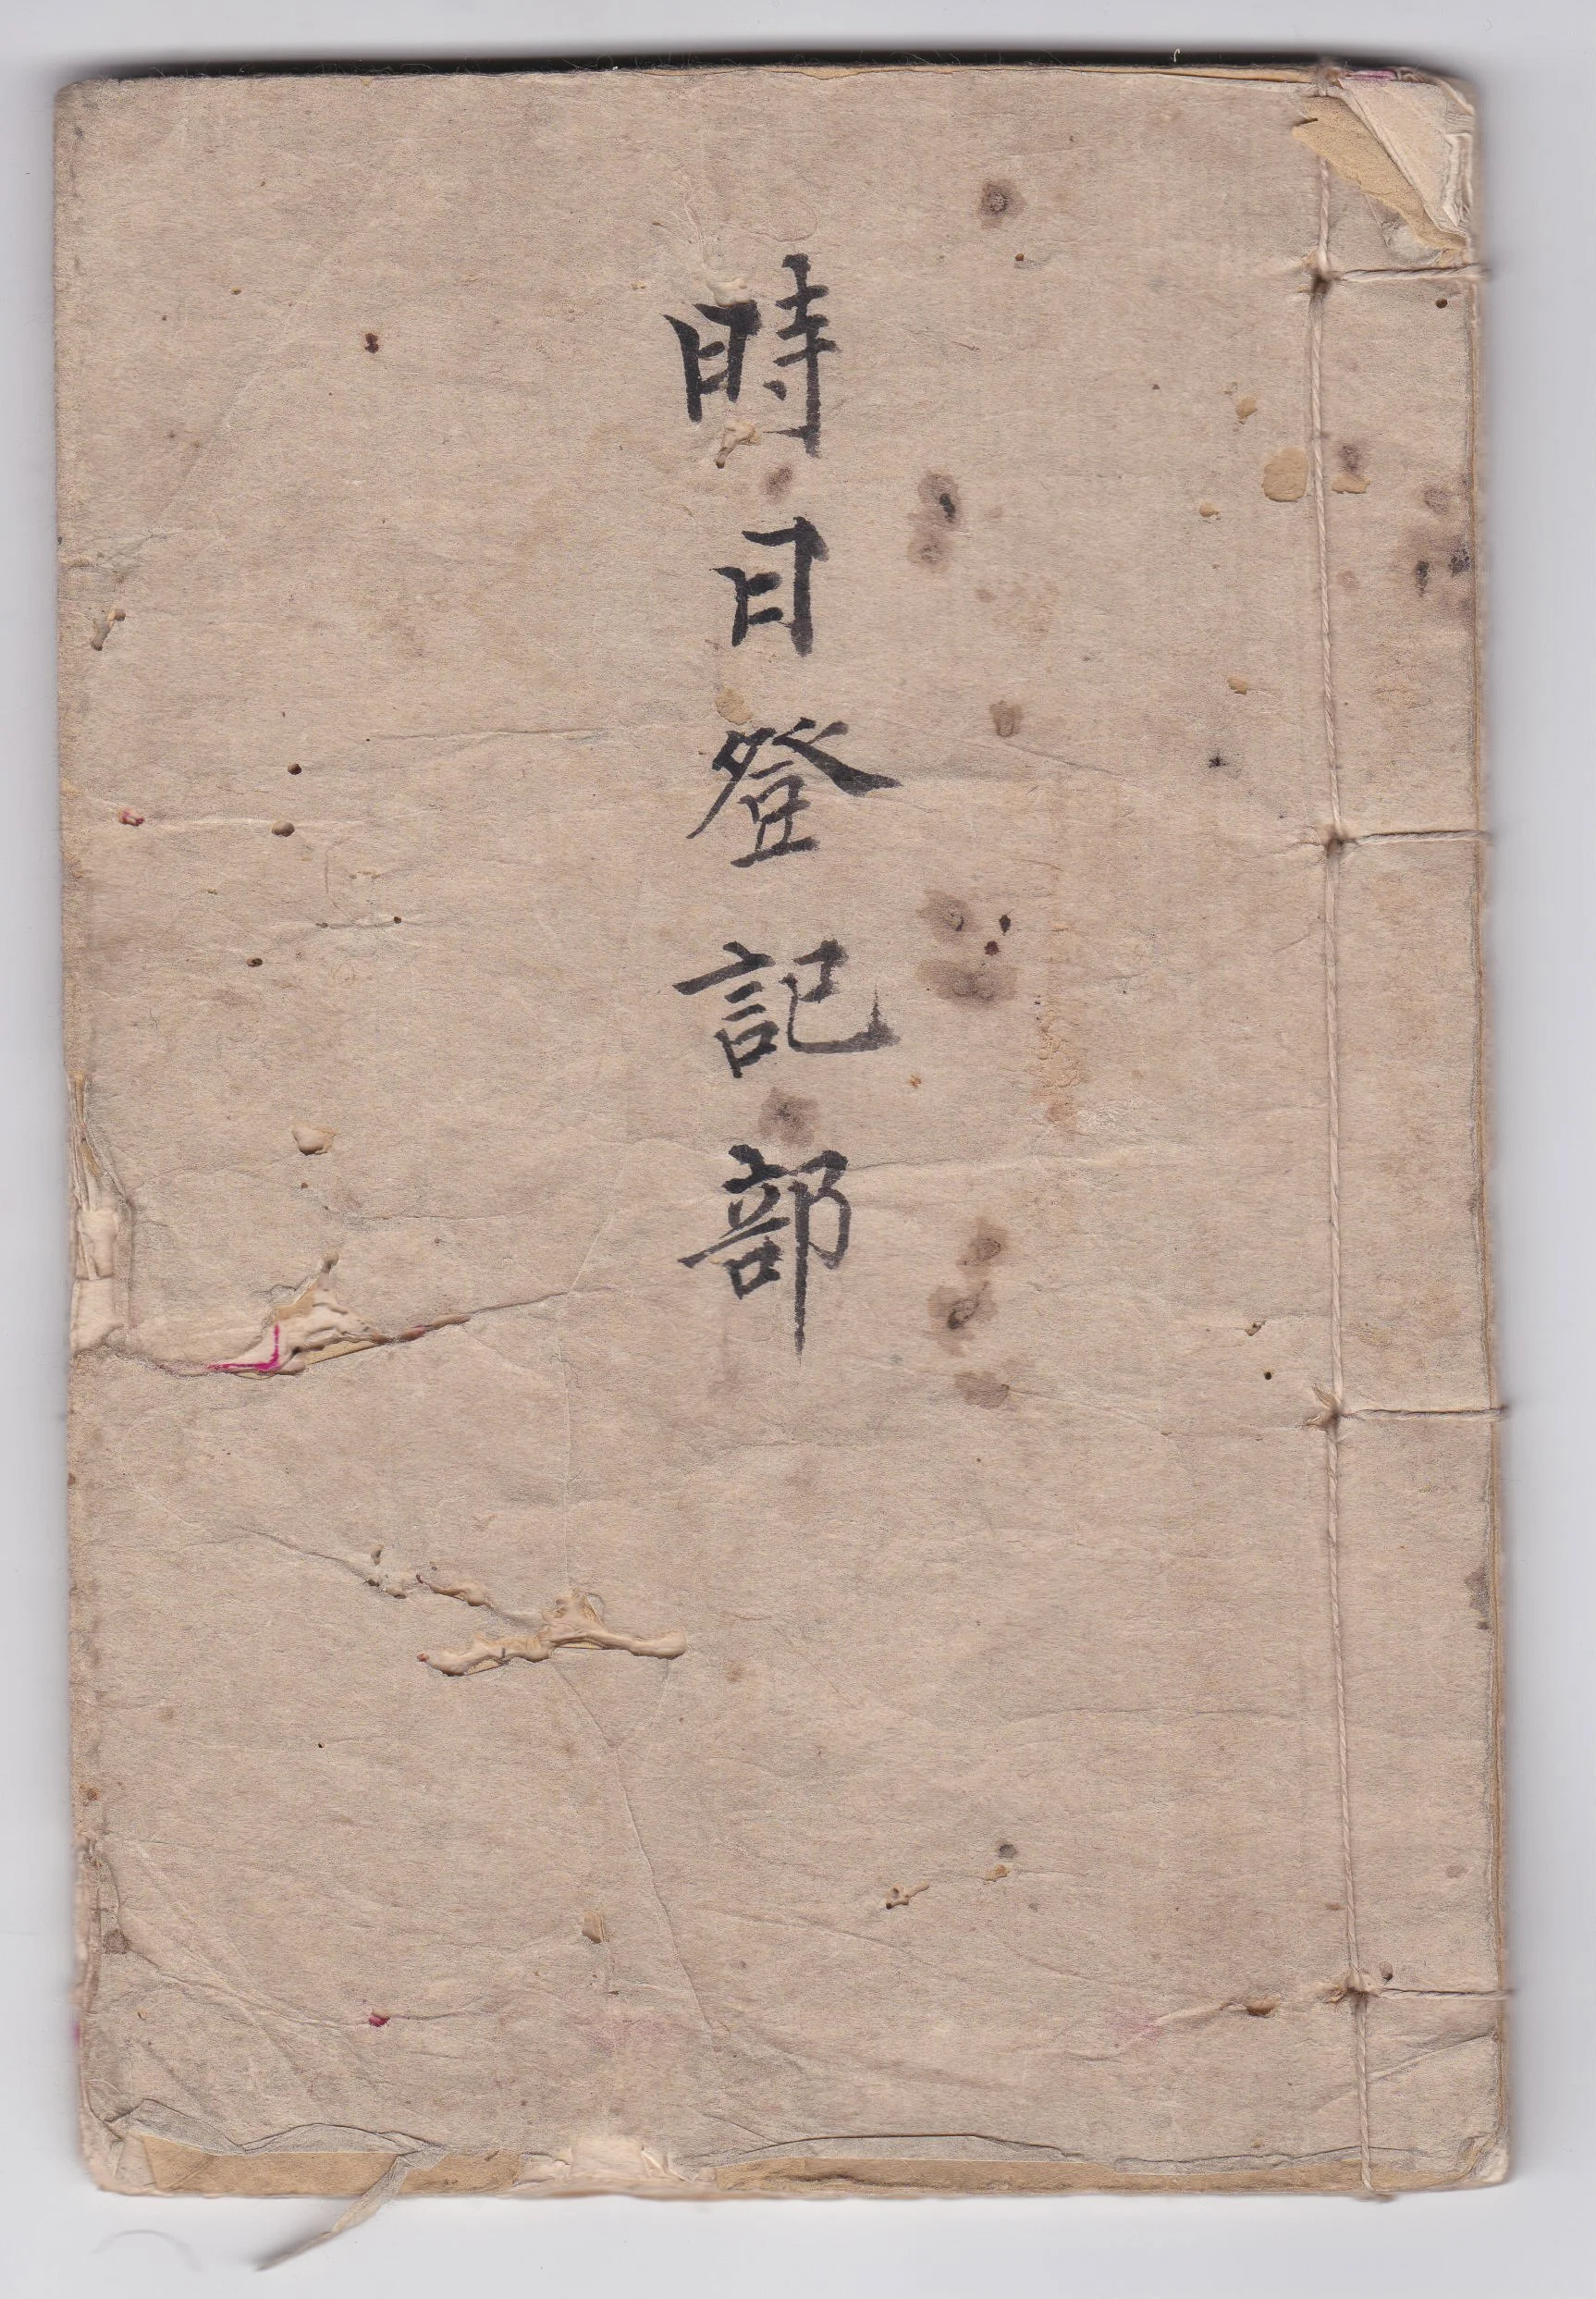 時日登記部